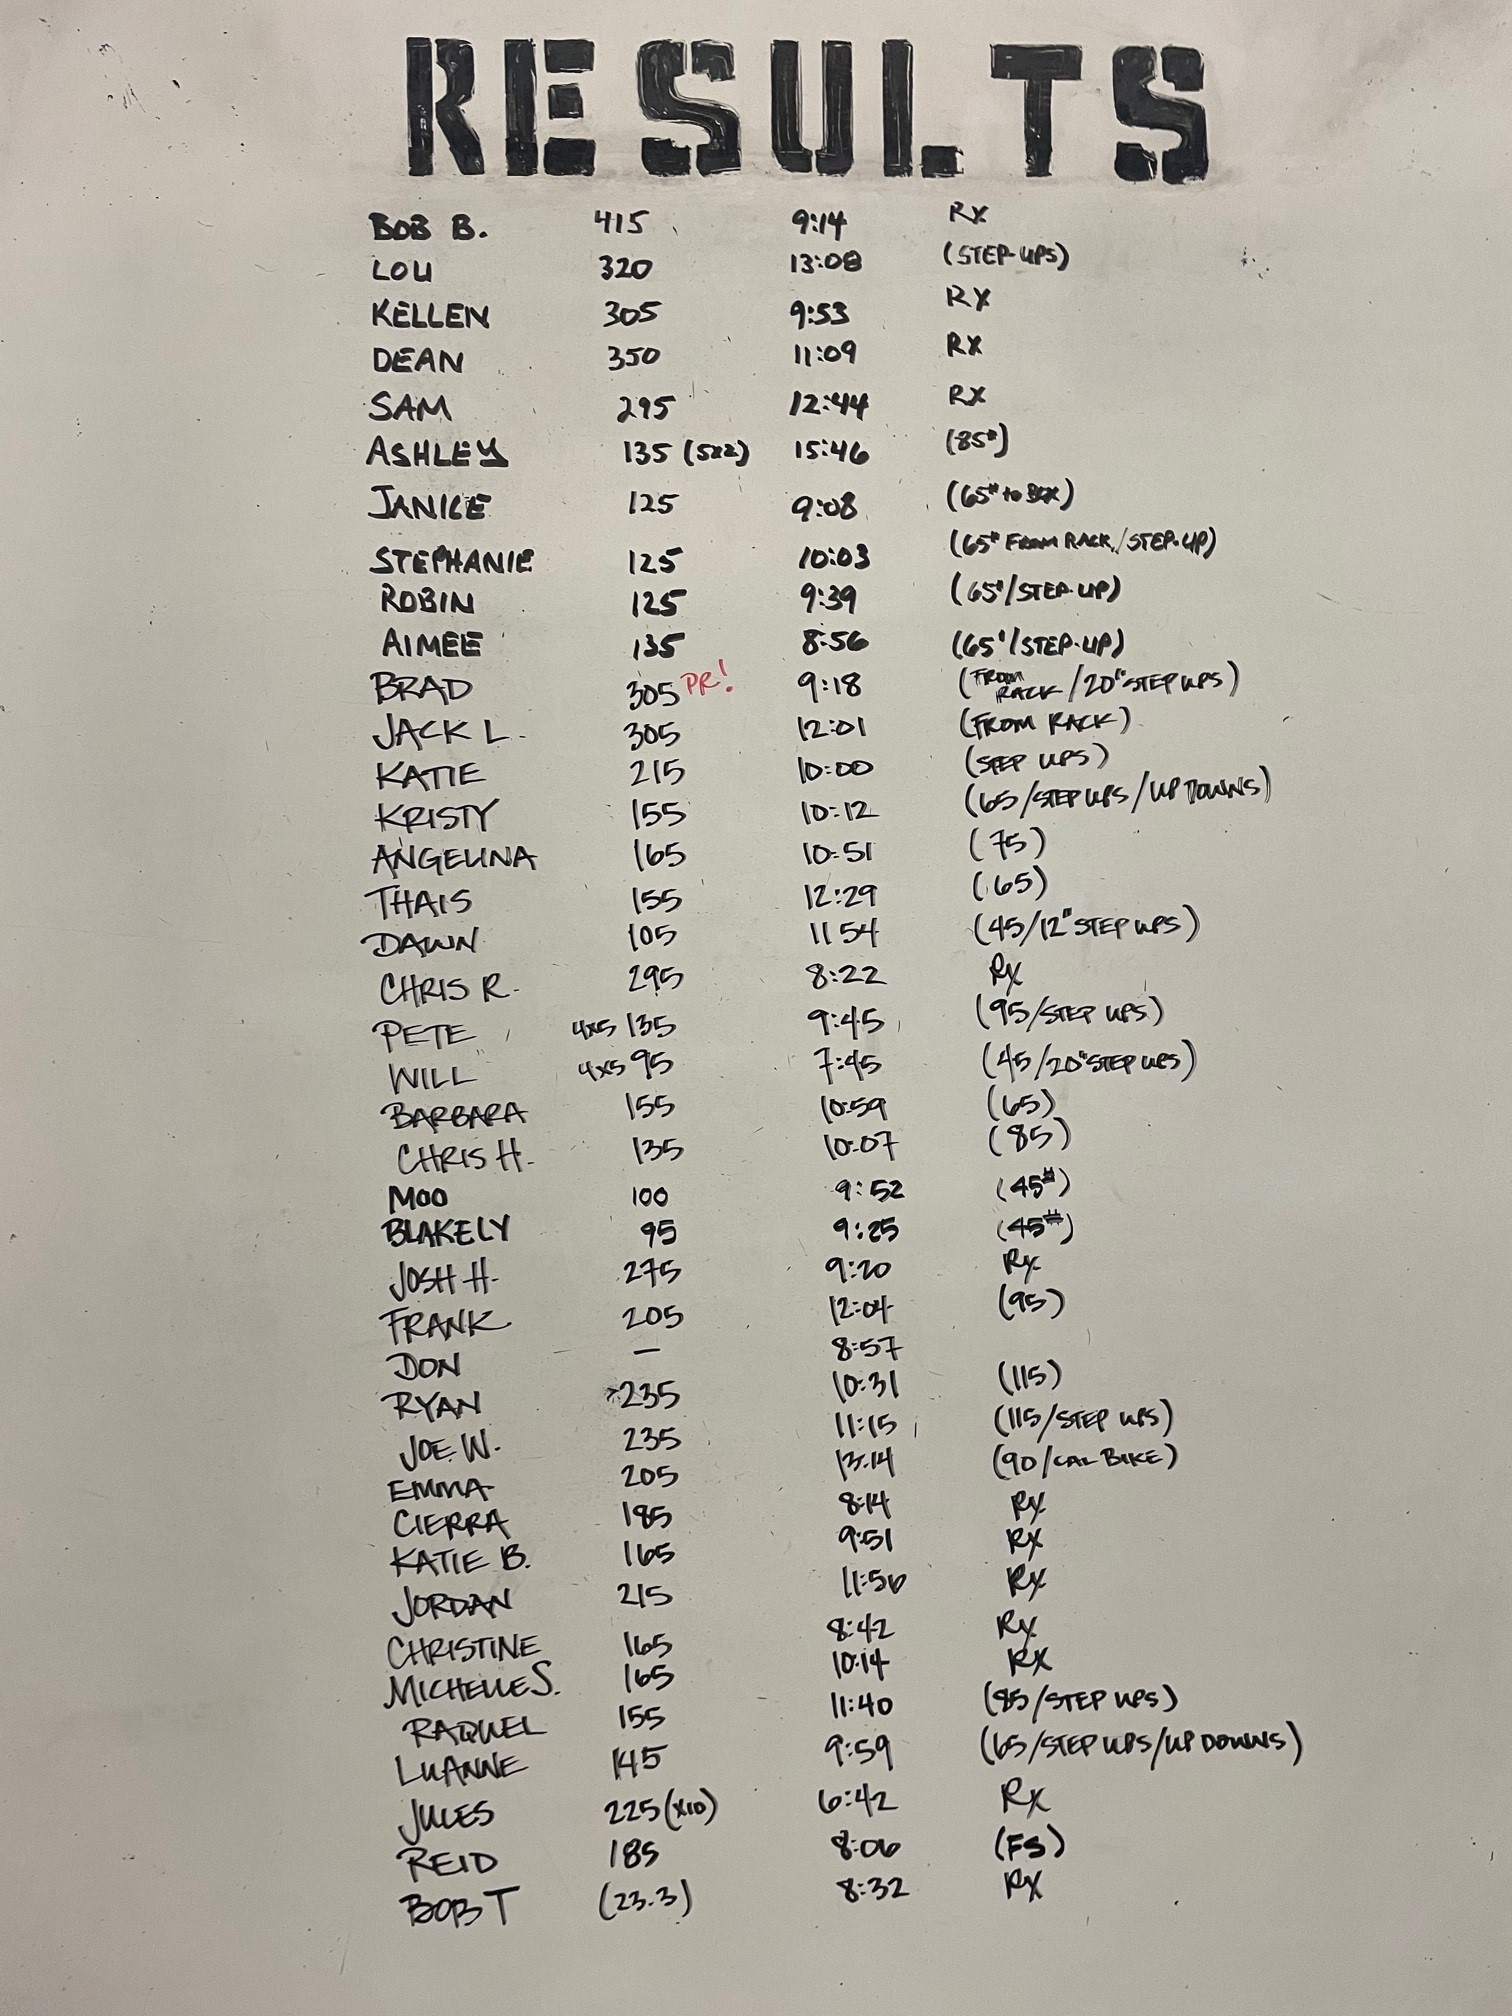 RESULTS
BOB B. 415 9:14 RX
LOU 320 13:08 (STEP-UPS)
KELLEN 305 9:53 RX
DEAN 350 11:09 RX
SAM 295 12:44 RX
ASHLEY 135 (5x2) 15:46 (85#)
JANICE 125 9:08 (65# to BOX)
STEPHANIE 125 10:03 (65# FROM RACK/STEP-UP)
ROBIN 125 9:39 (65#/STEP-UP)
AIMEE 135 8:56 (65'/STEP-UP)
BRAD 305 PR! 9:18 (FROM RACK/20" STEP UPS)
JACK L. 305 12:01 (FROM RACK)
KATIE 215 10:00 (STEP UPS)
KRISTY 155 10:12 (65/STEP UPS/UP DOWNS)
ANGELINA 165 10:51 (75)
THAIS 155 12:29 (65)
DAWN 105 11 54 (45/12" STEP UPS)
CHRIS R. 295 8:22 Rx
PETE 4x5 135 9:45 (95/STEP UPS)
WILL 4x5 95 7:45 (45/20" STEP UPS)
BARBARA 155 10:59 (65)
CHRIS H. 135 10:07 (85)
MOO 100 9:52 (45#)
BLAKELY 95 9:25 (45#)
JOSH H. 275 9:20 Rx
FRANK 205 12:04 (95)
DON — 8:57
RYAN 235 10:31 (115)
JOE W. 235 11:15 (115/STEP UPS)
EMMA 205 13:14 (90/CAL BIKE)
CIERRA 185 8:14 Rx
KATIE B. 165 9:51 Rx
JORDAN 215 11:56 Rx
CHRISTINE 165 8:42 Rx
MICHELLE S. 165 10:14 RX
RAQUEL 155 11:40 (85/STEP UPS)
LUANNE 145 9:59 (65/STEP UPS/UP DOWNS)
JULES 225 (x10) 6:42 Rx
REID 185 8:06 (FS)
BOB T (23.3) 8:32 Rx